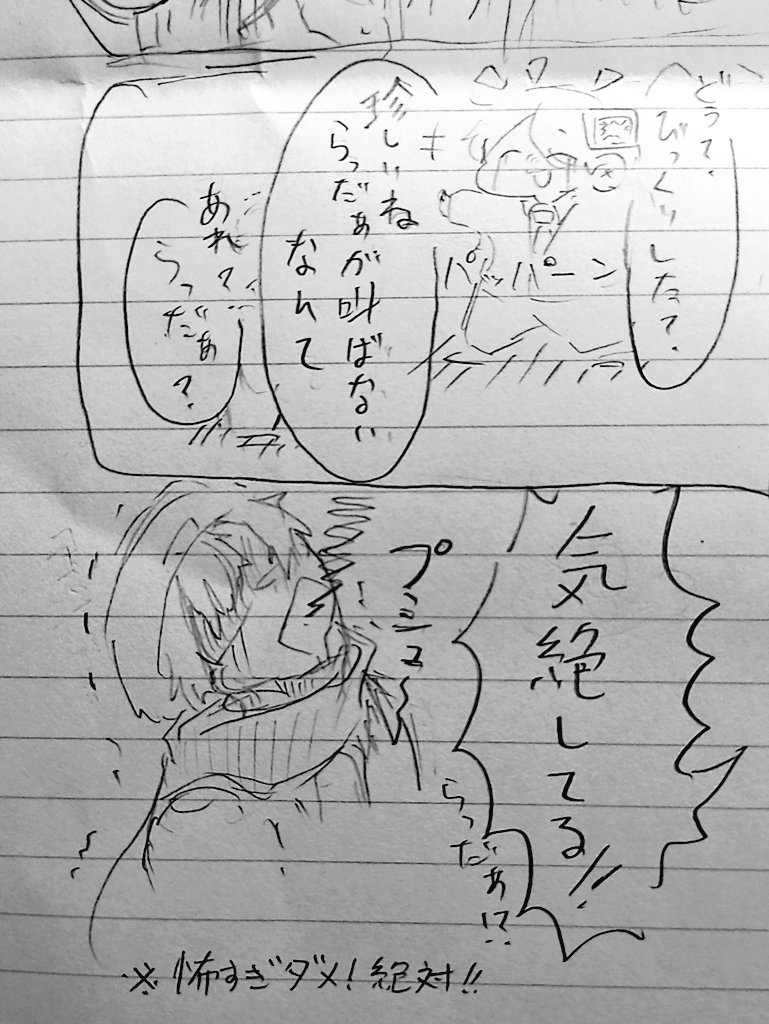 どう?
びっくりした?
パッパーン
珍しいね
らっだぁが叫ばない
なんて
あれ?
らっだぁ?
気絶してる!!
プシュー
らっだぁ!?
※怖すぎダメ!絶対!!